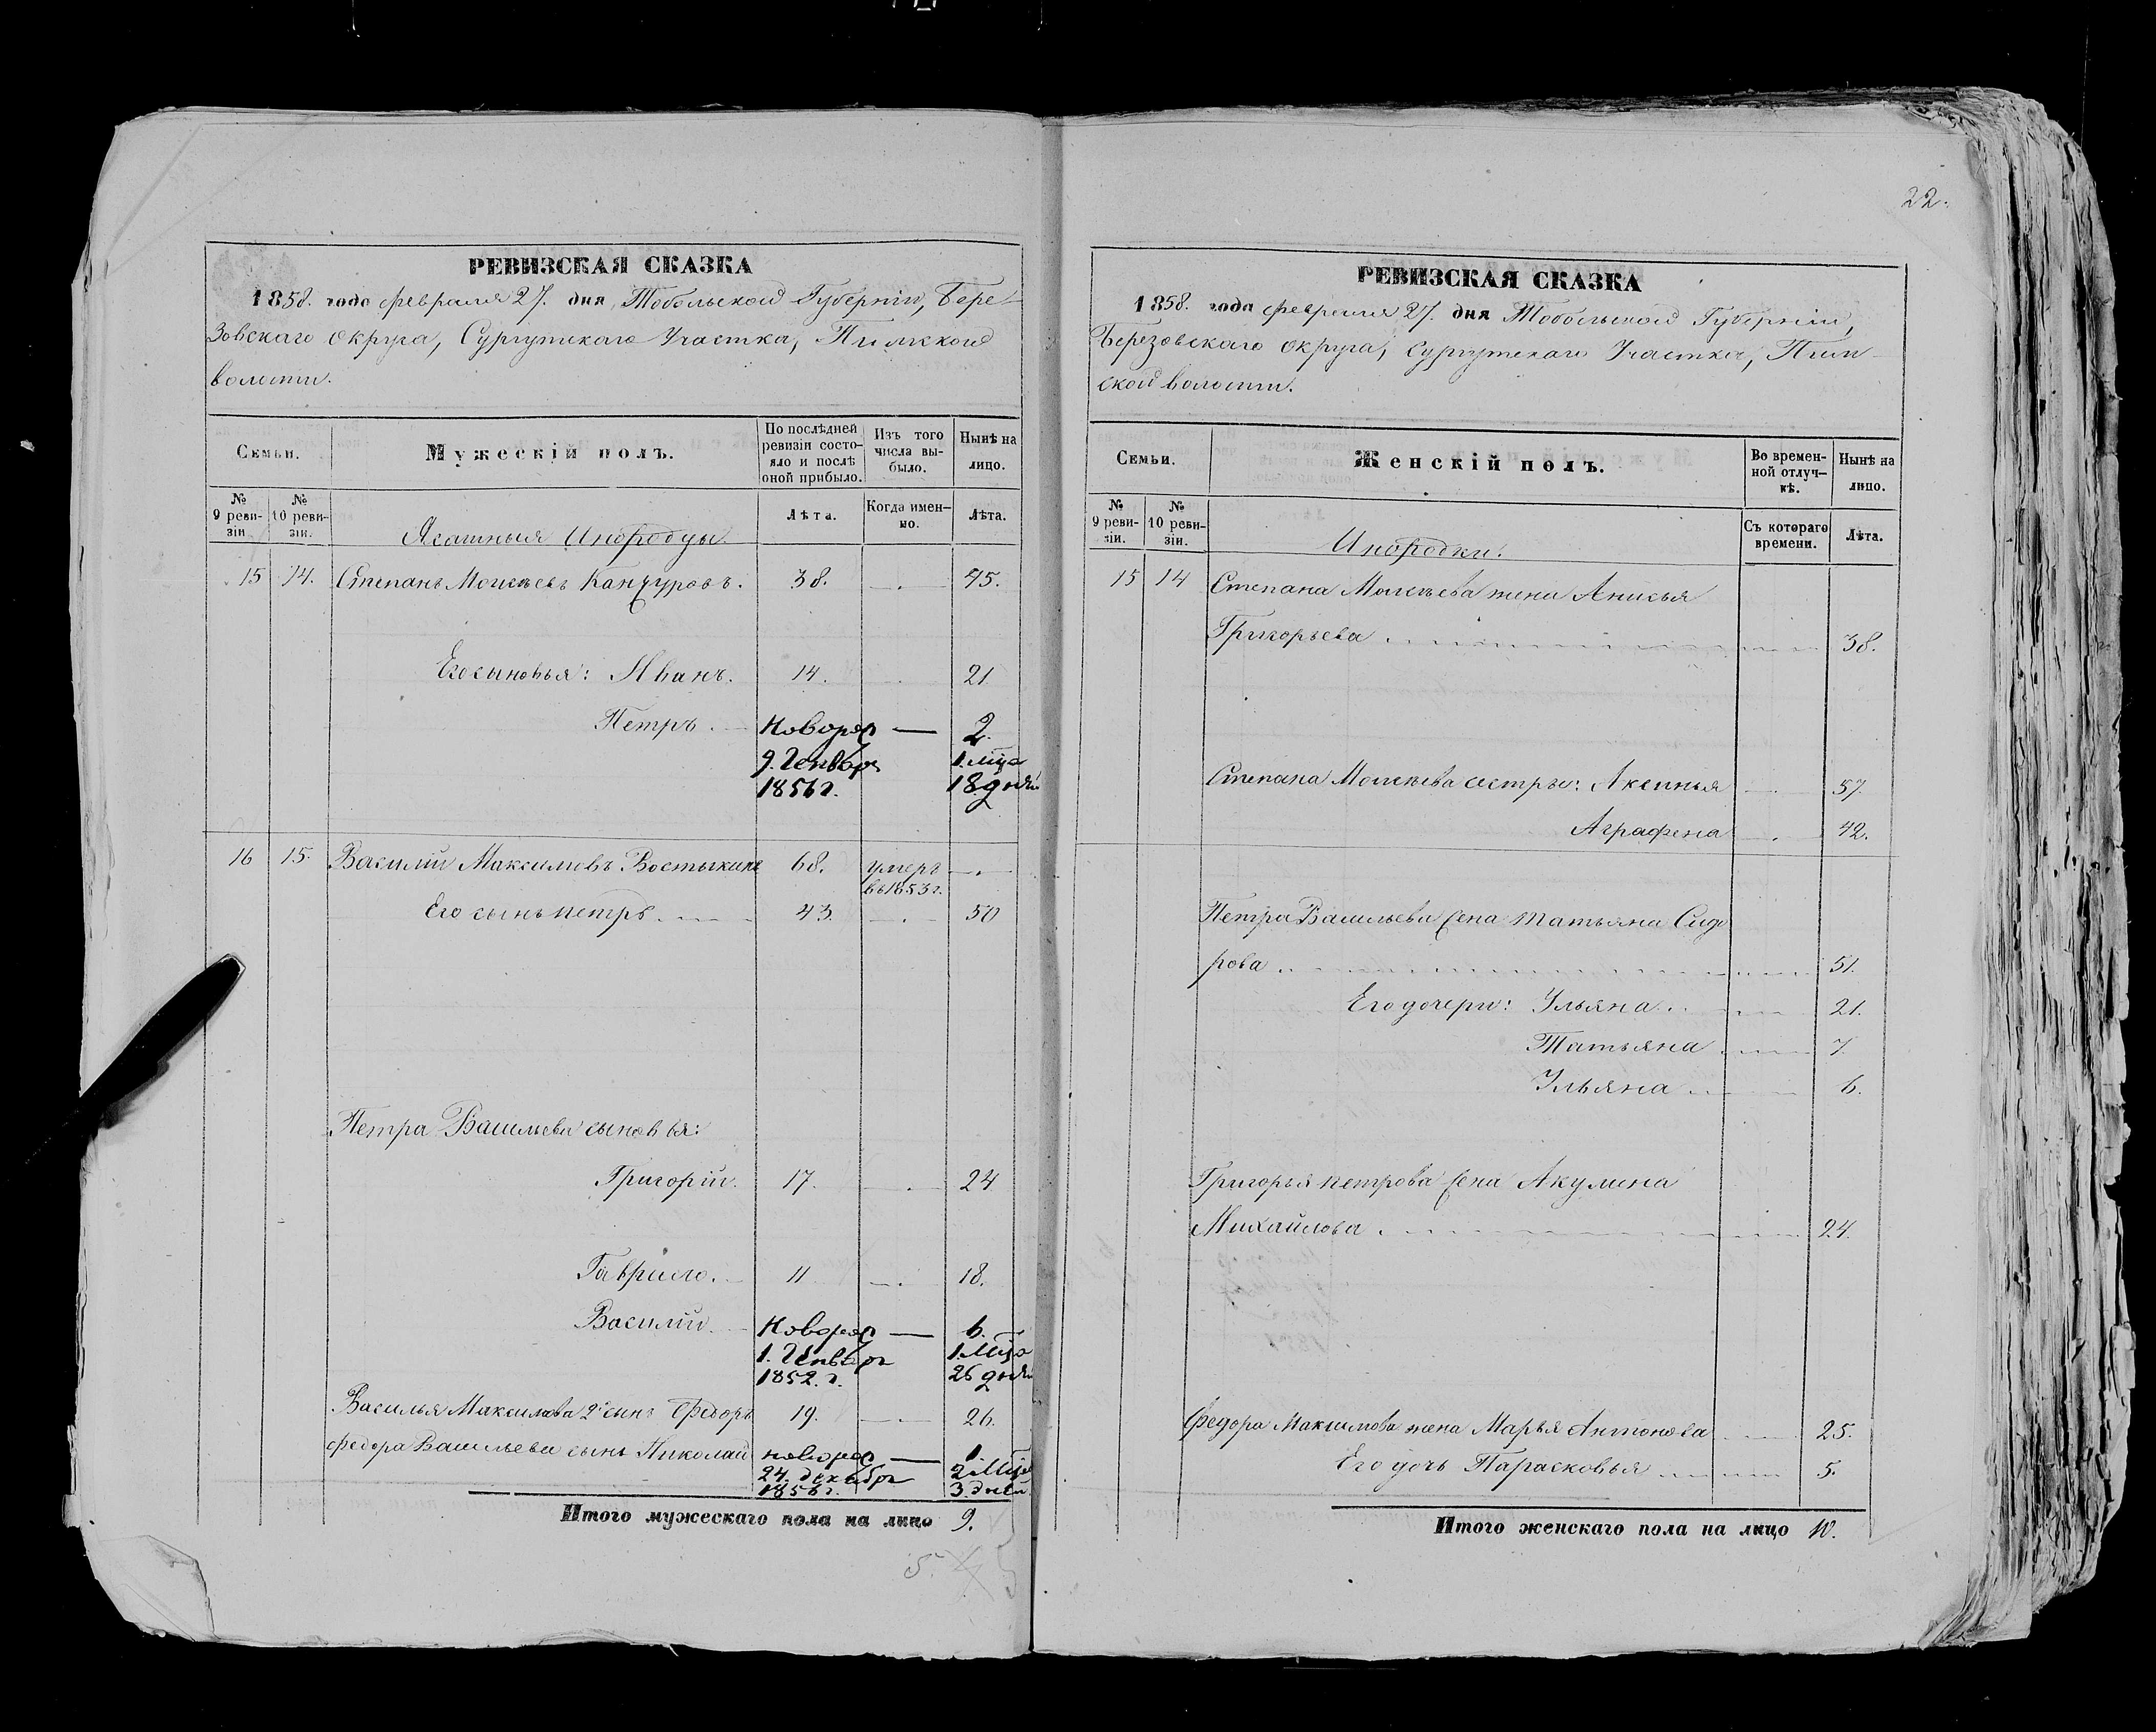 22.
РЕВИЗСКАЯ СКАЗКА
1858. года февраля 27. дня Тобольской Губерніи, Бере-
зовскаго округа, Сургутскаго Участка, Пимской
волости.
Семьи.
Мужескій полъ.
По послѣдней ревизіи состо-яло и послѣ оной прибыло.
Изъ того числа вы-было.
Нынѣ на лицо.
№ 9 реви-зіи
№ 10 реви-зіи.
Ясашныя Инородцы
Лѣта.
Когда имен-но.
Лѣта.
15 14. Степанъ Моисѣевъ 38. 45.
Его сыновья: Иванъ. 14. 21
Петръ Новорож 2.
9. Генваря 1. мца
1856 г. 18 дней
16 15. Василій Максимовъ Востыкинъ 68. умеръ
въ 1853 г.
Его сынъ петръ 43. 50
Петра Васильева сыновья:
Григорій. 17. 24
Гаврило. 11 18.
Василій. Новорож 6.
1. Генваря 1 мца
1852. г. 26 дней
Василья Максимова 2й сынъ Федоръ 19. 26.
Федора Васильева сынъ Николай новорож 1.
24. декабря 2 мца
1856 г. 3. дня
Итого мужескаго пола на лицо 9.
5.
РЕВИЗСКАЯ СКАЗКА
1858. года февраля 27. дня Тобольской Губерніи,
Березовскаго округа, Сургутскаго Участка, Пим-
ской волости.
Семьи.
Женскій полъ.
Во времен-ной отлуч-кѣ.
Нынѣ на лицо.
№ 9 реви-зіи.
№ 10 реви-зіи.
Инородки.
Съ котораго времени.
Лѣта.
15 14 Степана Моисѣева жена Анисья
Григорьева 38.
Степана Моисѣева сестры: Аксинья 57.
Аграфена 42.
Петра Васильева жена Татьяна Сидо
рова 51.
Его дочери: Ульяна 21.
Татьяна 7.
Ульяна 6.
Григорья петрова жена Акулина
Михайлова 24.
Федора Максимова жена Марья Антонова 25.
Его дочь Парасковья 5.
Итого женскаго пола на лицо 10.